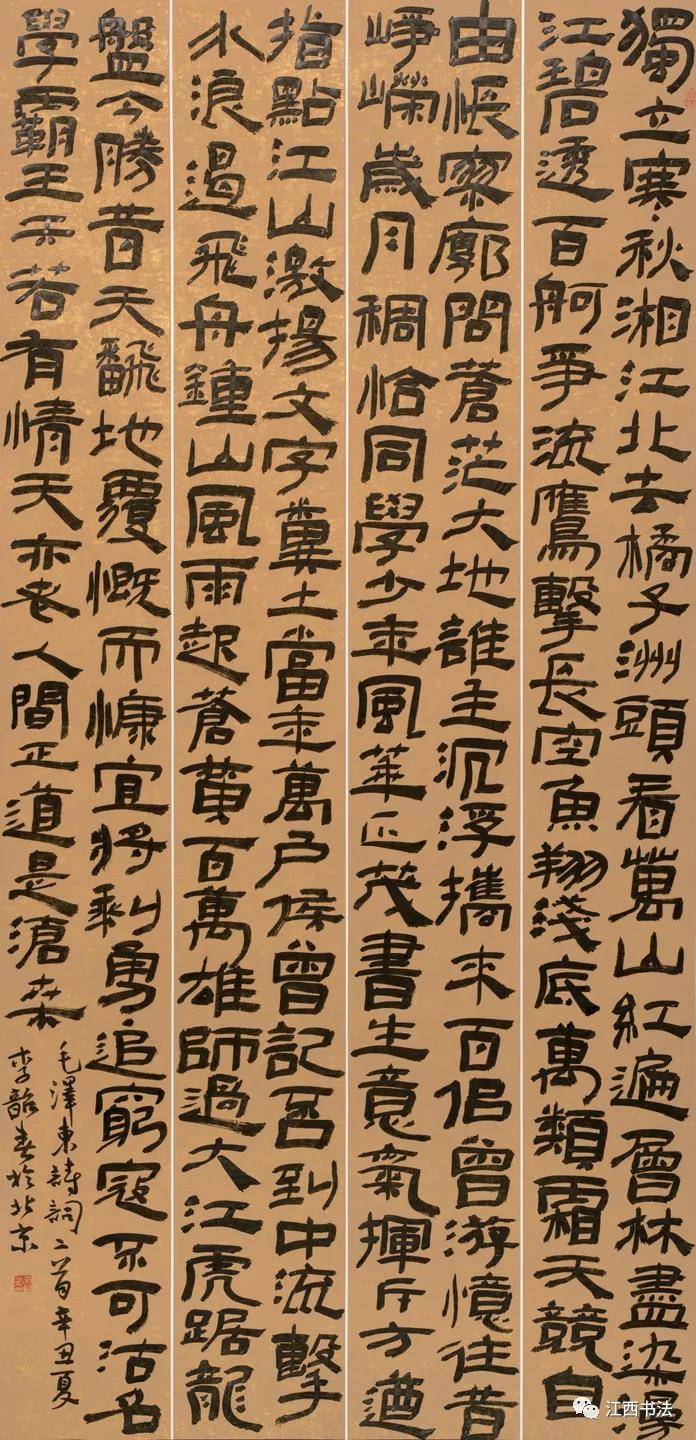 獨立寒秋湘江北去橘子洲頭看萬山紅遍層林盡染漫
江碧透百舸爭流鷹擊長空魚翔淺底萬類霜天競自
由悵寥廓問蒼茫大地誰主沉浮攜來百侶曾游憶往昔
崢嶸歲月稠恰同學少年風華正茂書生意氣揮斥方遒
指點江山激揚文字糞土當年萬戶侯曾記否到中流擊
水浪遏飛舟鍾山風雨起蒼黃百萬雄師過大江虎踞龍
盤今勝昔天飜地覆慨而慷宜將剩勇追窮寇不可沽名
學霸王天若有情天亦老人間正道是滄桑
毛澤東詩詞二首辛丑夏
李春於北京
江西书法